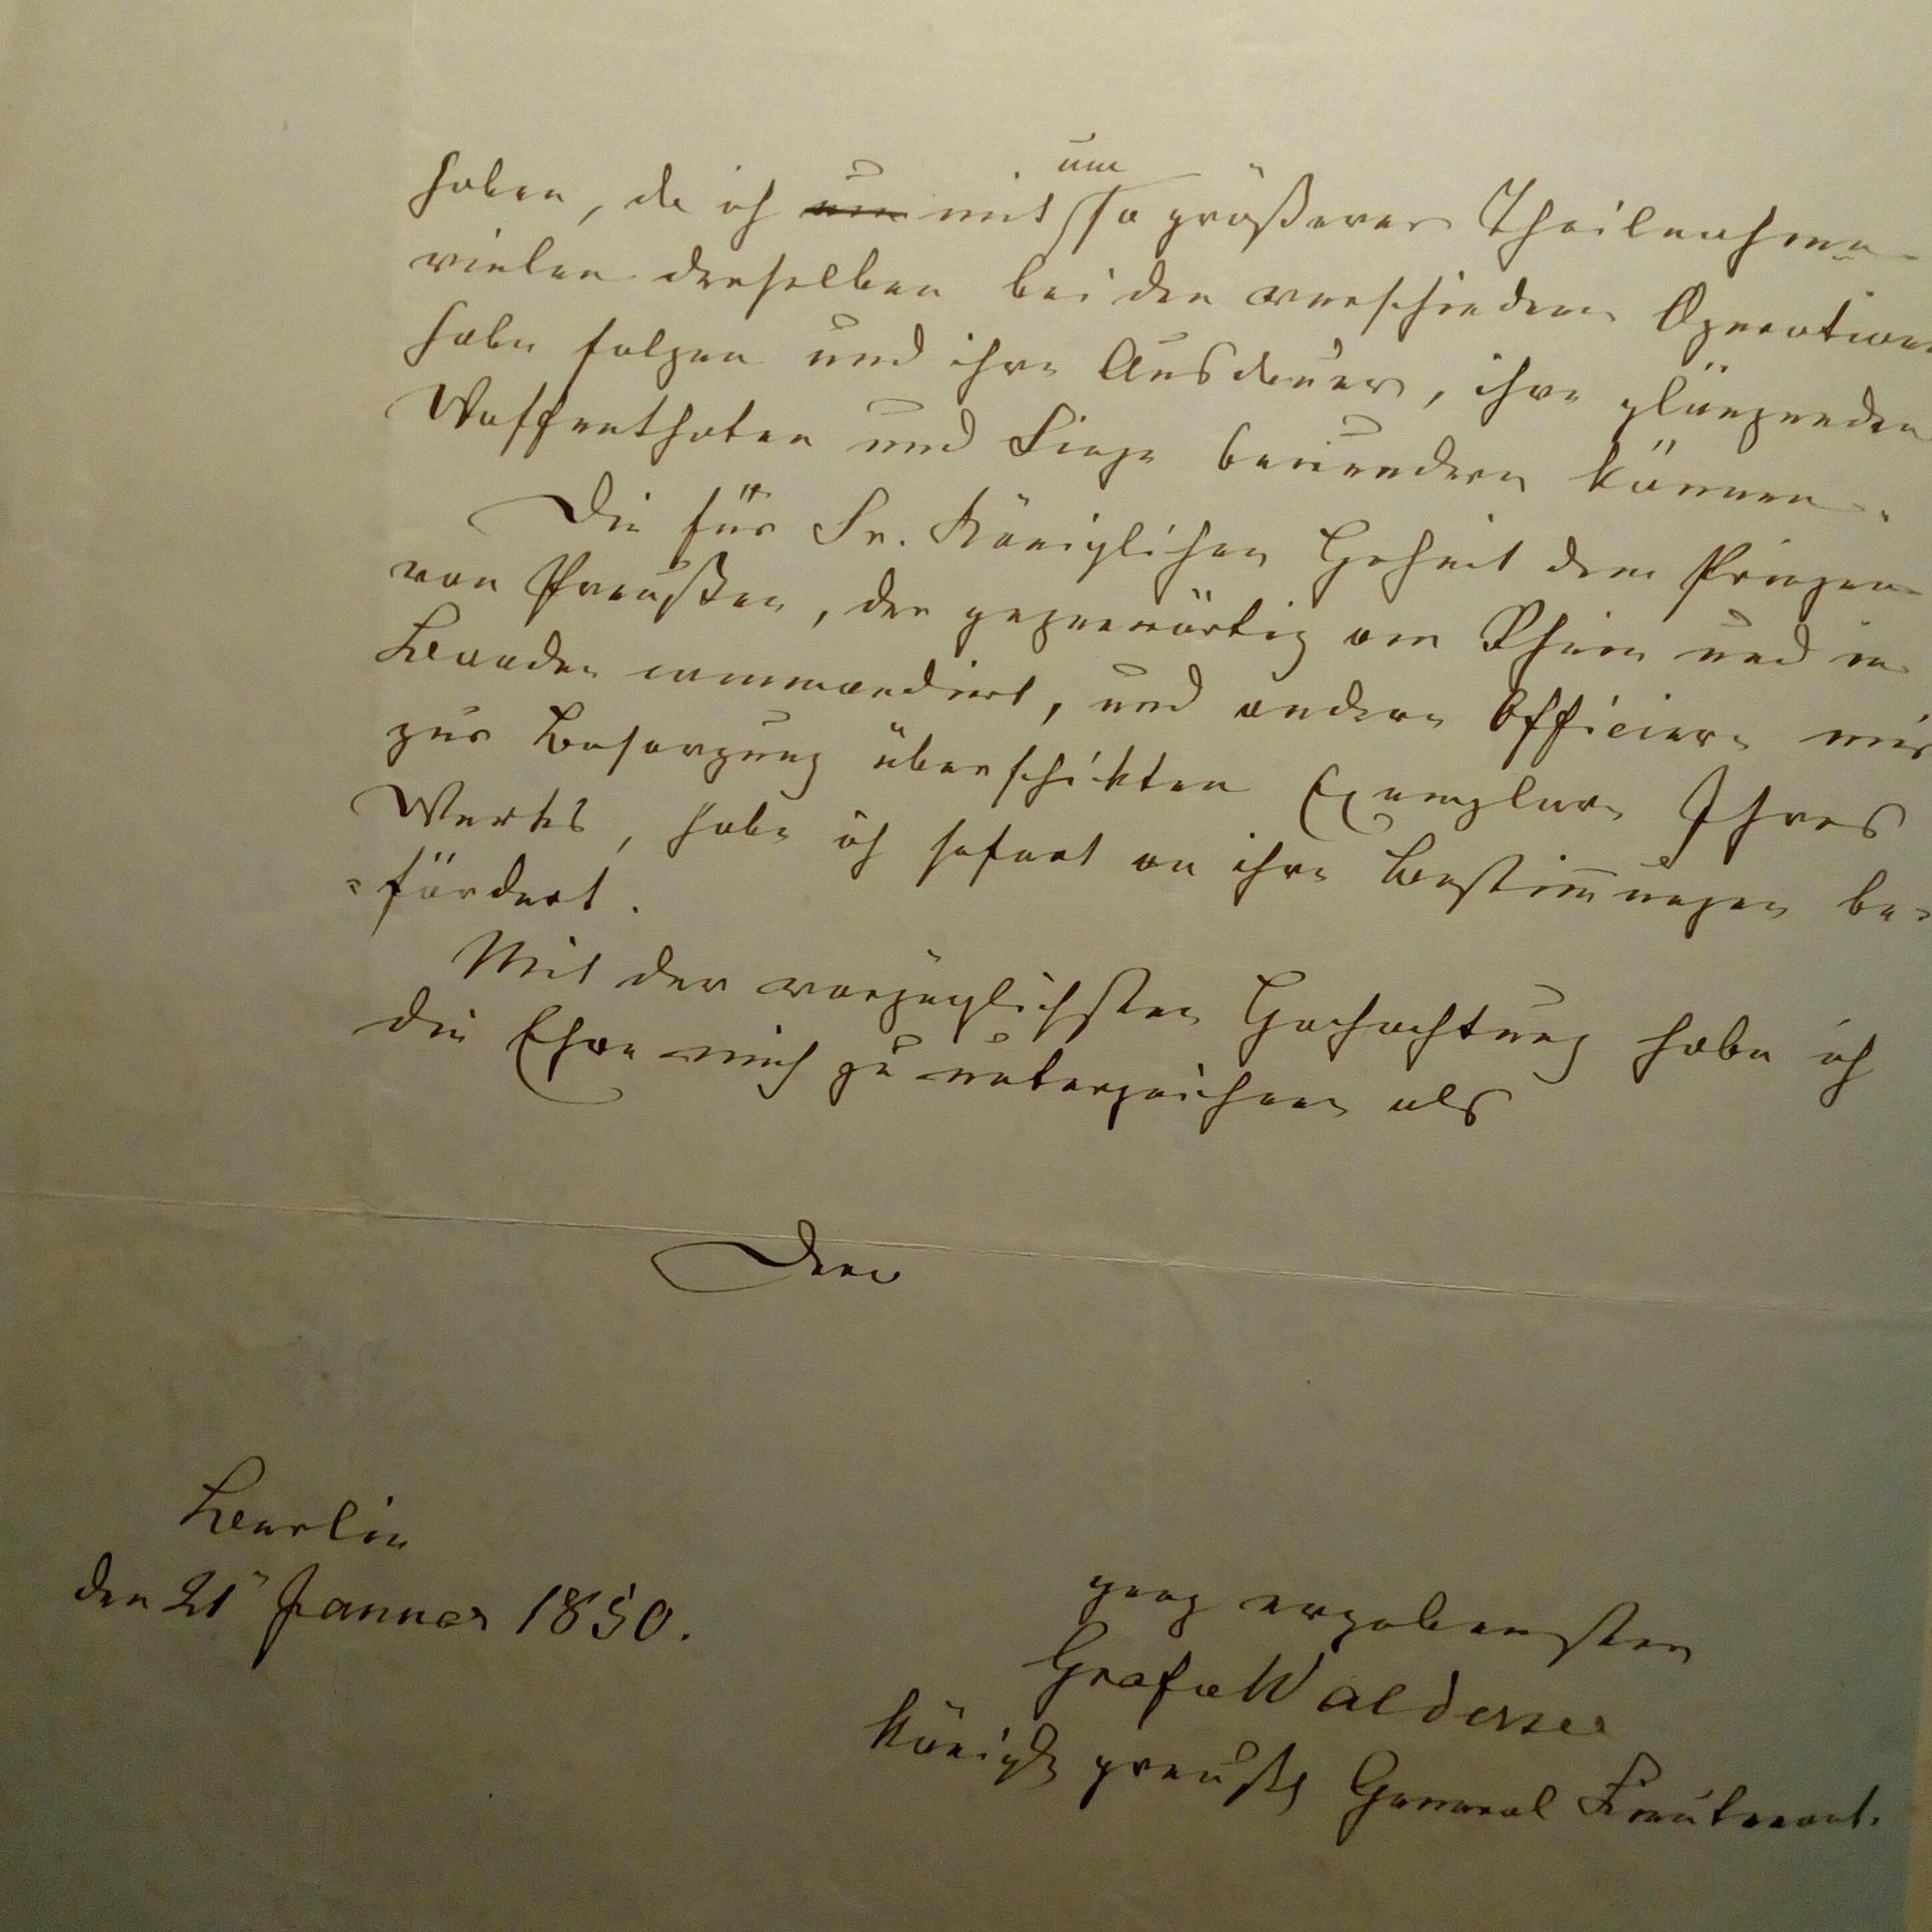 haben, da ich um mit um so größerer Theilnahme
vielen derselben bei den verschiedenen Operationen
habe folgen und ihre Ausdauer, ihre glänzenden
Waffenthaten und Siege bewundern können.
Die für Sr. Königlichen Hoheit dem Prinzen
von Preußen, der gegenwärtig am Rhein und in
Baaden commandirt, und andere Officiere mir
zur Besorgung überschikten Exemplare Ihres
Werks, habe ich sofort an ihre Bestim̅ungen be=
=fördert.
Mit der vorzüglichsten Hochachtung habe ich
die Ehre mich zu unterzeichnen als
Dero
Berlin
den 21 Januar 1850.
ganz ergebensten
Graf Waldersee
Königl preuß General Lieutenant.